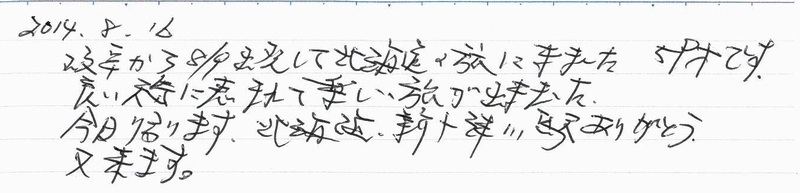 2014.8.16
岐阜から8/9出発して北海道の旅に来ました 5人です。
良い天気に恵まれて楽しい旅が出来ました。
今日帰ります。北海道、新十津川駅ありがとう
又来ます。